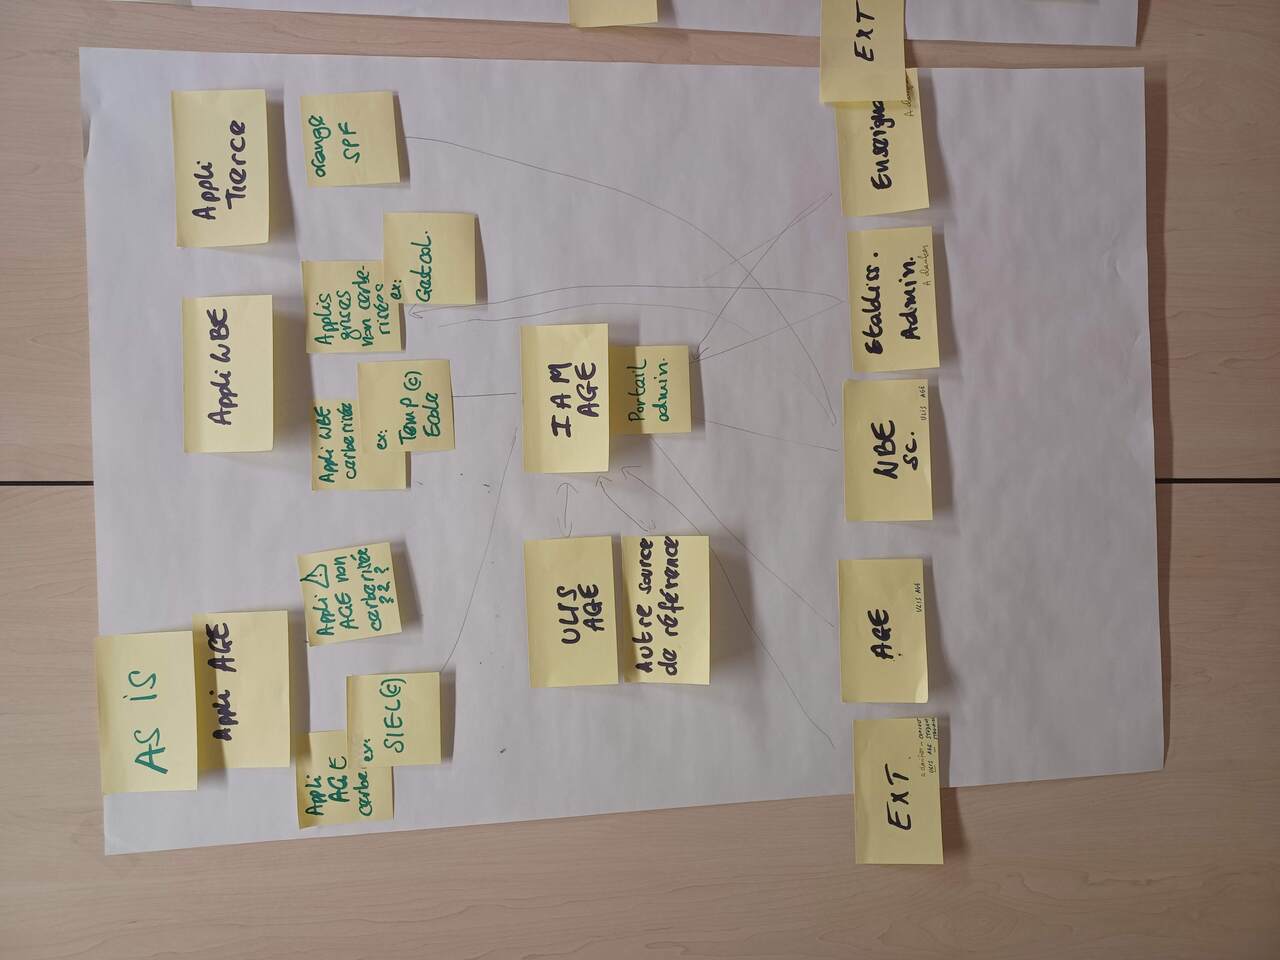 AS IS
Appli AGE
Appli WBE
Appli
Tierce
Appli
AGE
ex:
SIEL(c)
Appli ⚠
AGE non
cerberisée
???
Appli WBE
cerberisée
ex:
Temp (c)
Ecole
Applis
grises
non cerbe-
risées
ex:
Gestcol.
orange
SPF
ULIS
AGE
IAM
AGE
Autre source
de référence
Portail
admin.
EXT.
ULIS AGE
AGE
ULIS AGE
WBE
sc.
ULIS AGE
Etabliss.
Admin.
Enseigna
EXT